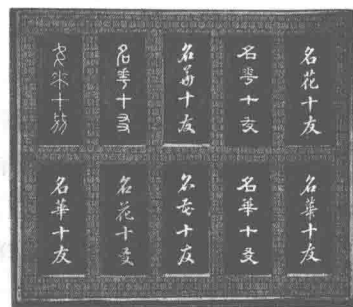 名花十友
名華十友
名華十友
名華十友
名花十友
名華十友
名華十友
名花十友
名花十友
名華十友